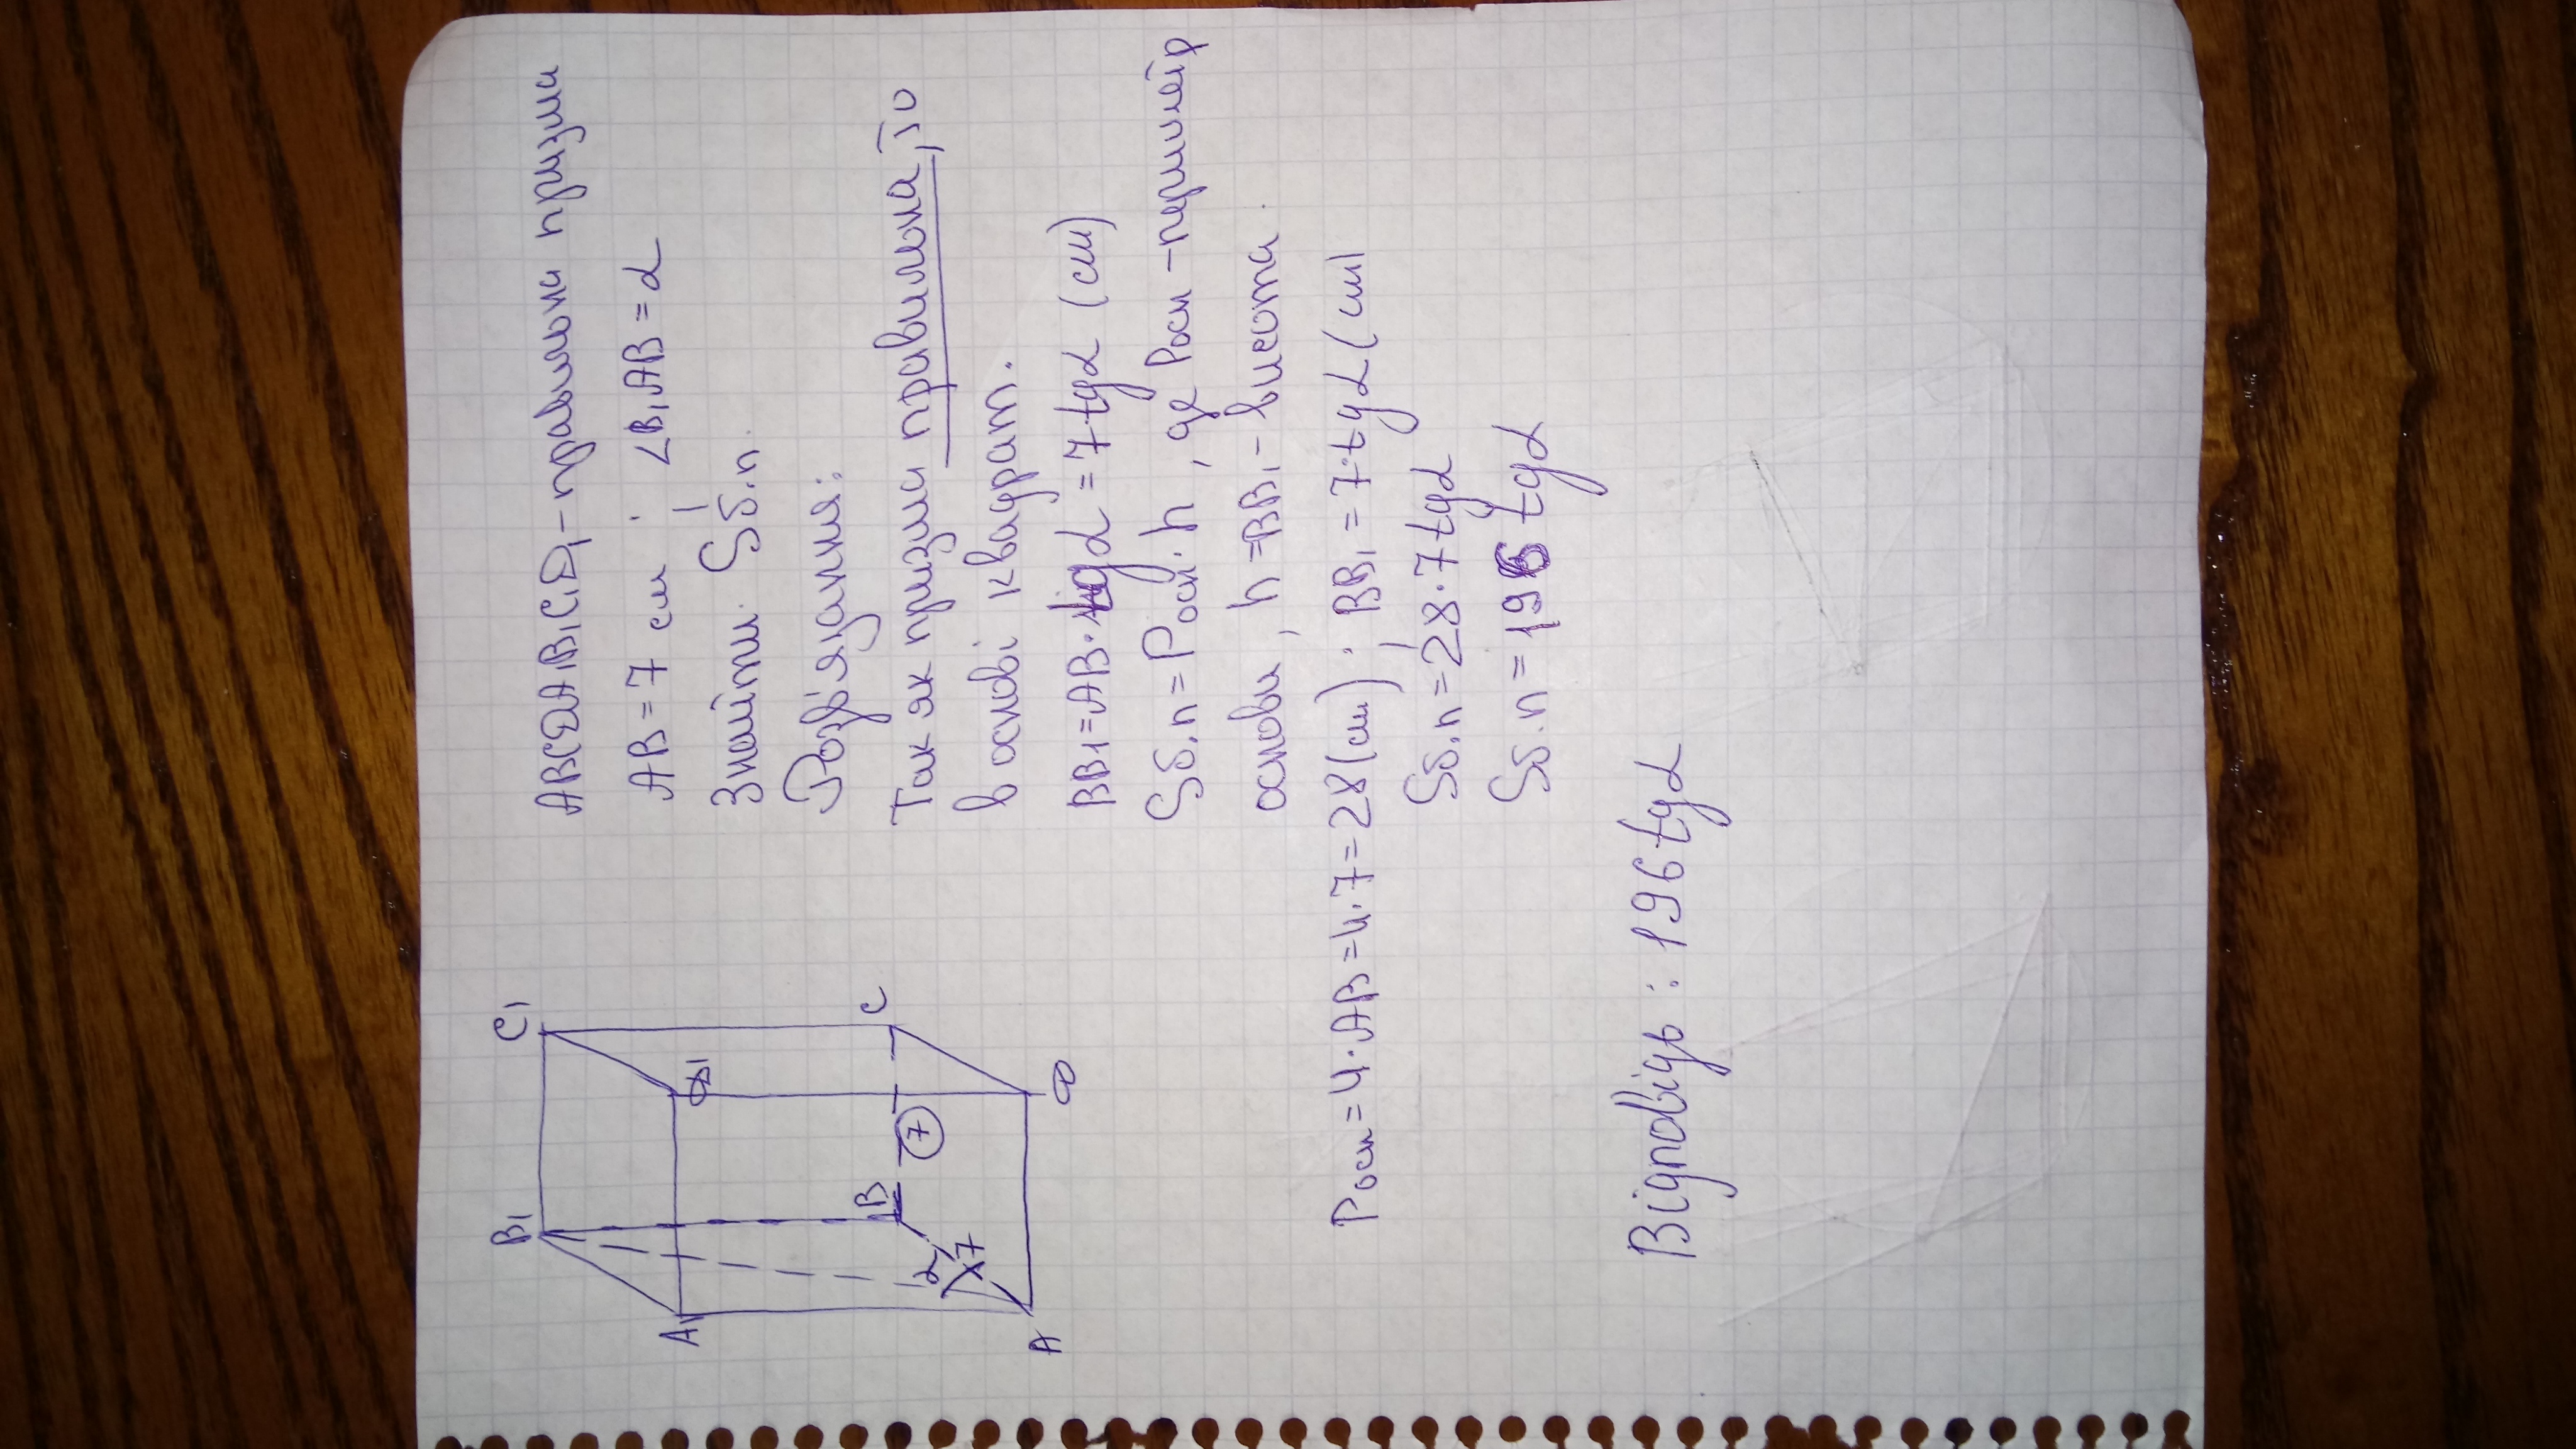 B₁
C₁
A₁
D₁
B
C
7
α
7
A
D
ABCDA₁B₁C₁D₁ - правильна призма
AB = 7 см ; ∠B₁AB = α
Знайти Sб.п.
Розв'язання:
Так як призма правильна, то
в основі квадрат.
BB₁ = AB · tgα = 7 tgα (см)
Sб.п = Pосн · h , де Pосн - периметр
основи , h = BB₁ - висота.
Pосн = 4·AB = 4·7 = 28 (см) ; BB₁ = 7·tgα (см)
Sб.п = 28·7tgα
Sб.п = 196 tgα
Відповідь : 196 tgα